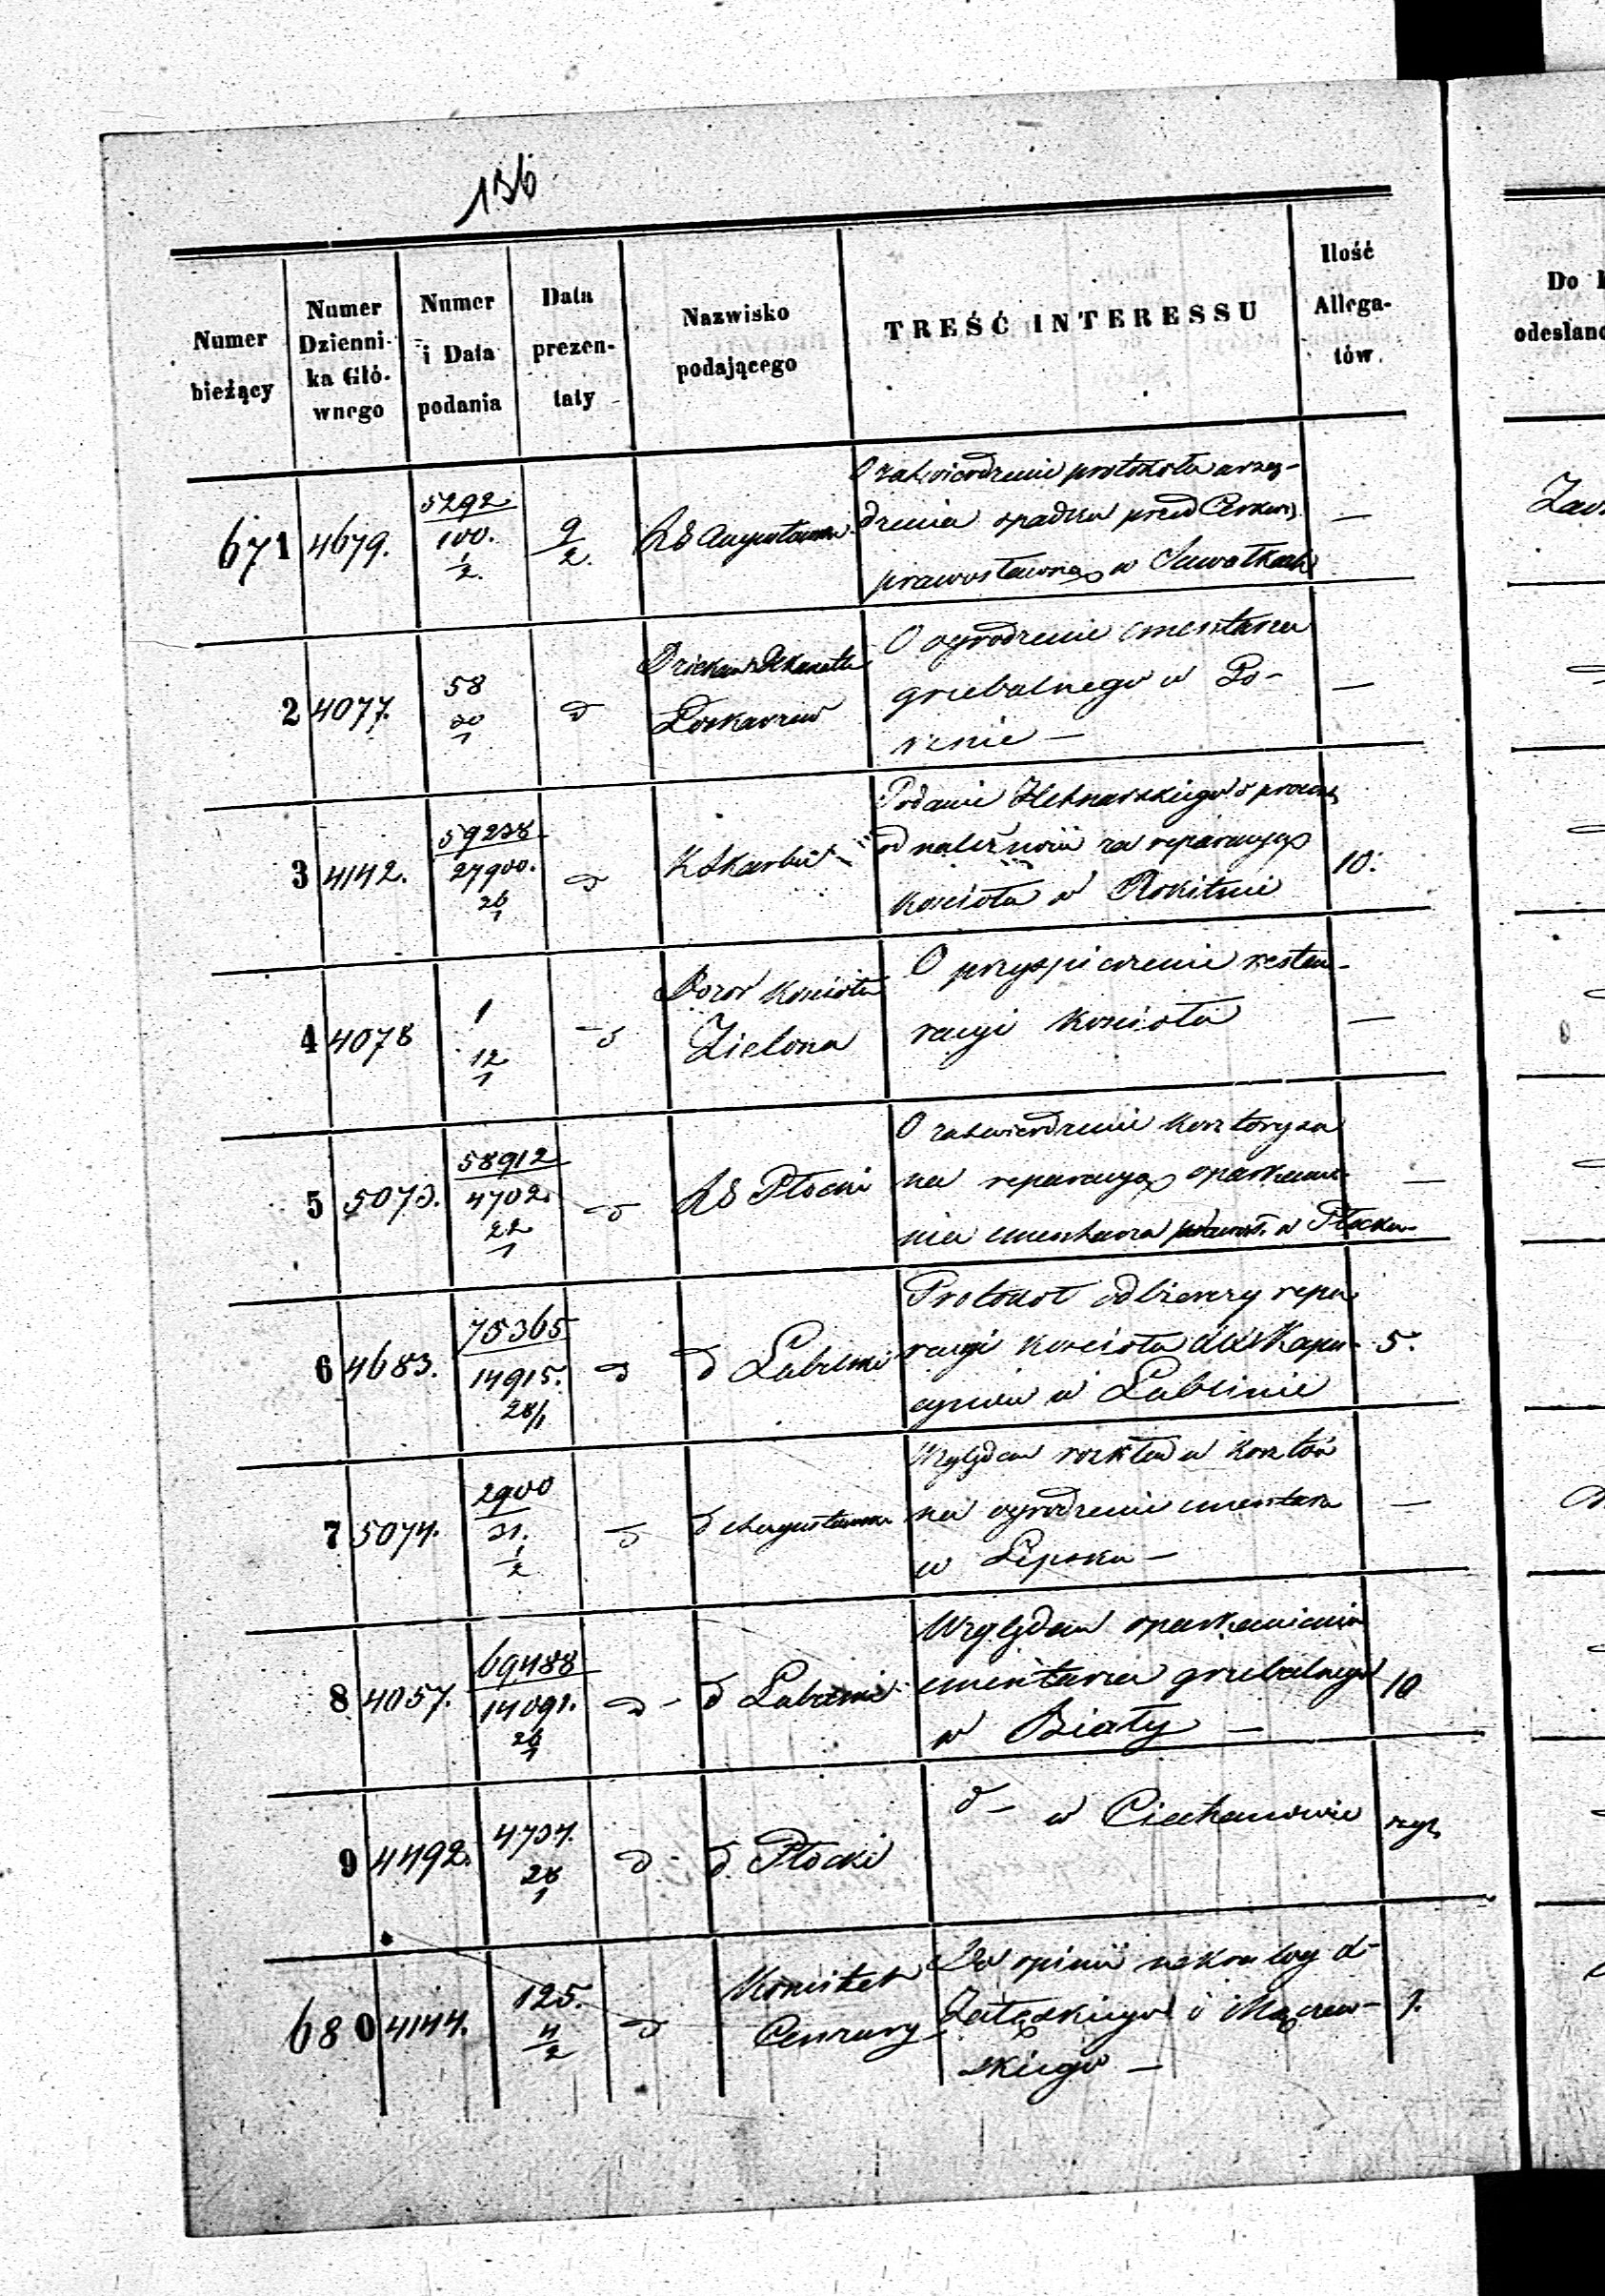 136
Numer bieżący
Numer Dzienni- ka Głó- wnego
Numer i Data podania
Data prezen- taty
Nazwisko podającego
TREŚĆ INTERESSU
Ilość Allega- tów.
Do
odesłano
671 4679. 5292 100. 1/2. 9/2. RG Augustowski O zatwierdzenie protokołu urzą-
dzenia spadku przed Cerkwią
prawosławną w Suwałkach —
2 4077. 58 30/1 d Dziekan Dekanatu O ogrodzenie cmentarza
grzebalnego w —
3 4142. 27900. 26/1 d K Skarbu Podanie o procent
od należności za reparacyą
kościoła w Rokitnie 10.
4 4078 1 12/1 d Dozór Kościoła O przyspieszenie restau-
Zielona racyi kościoła —
5 5073. 58912 4702. 22/1 d RG Płocki O zatwierdzenie kosztorysu
na reparacyą oparkanie-
nia cmentarza prawosł. w Płocku —
6 4683. 75365 14915. 28/1 d d Lubelski Protokół odbiorczy repa
racyi kościoła XX Kapu-
cynów w Lublinie 5.
7 5074. 2900 31. 1/2 d d Augustowski Względem rozkładu kosztów
na ogrodzenie cmentarza
w Lipsku — —
8 4057. 69488 14091. 26/1 d - d Lubelski Względem oparkanienia
cmentarza grzebalnego
w Biały — 10
9 4492. 4734. 28/1 d - d. Płocki d — w Ciechanowie
680 4144. 125. 4/2 d Komitet Do opinii nekrolog d-
Cenzury Załęskiego i
skiego — 1.